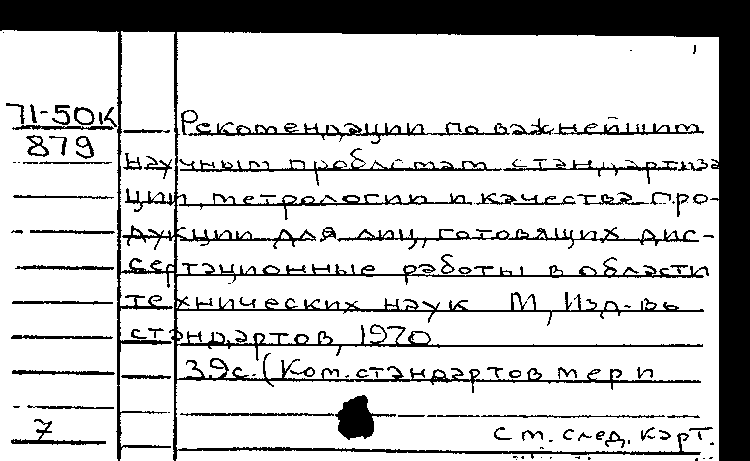 71-50К
879
Рекомендации по важнейшим
научным проблемам стандартиза
ции, метрологии и качества про-
дукции для лиц, готовящих дис-
сертационные работы в области
технических наук М, Изд-во
стандартов, 1970.
39с. (Ком. стандартов мер и
7
См. след. карт.